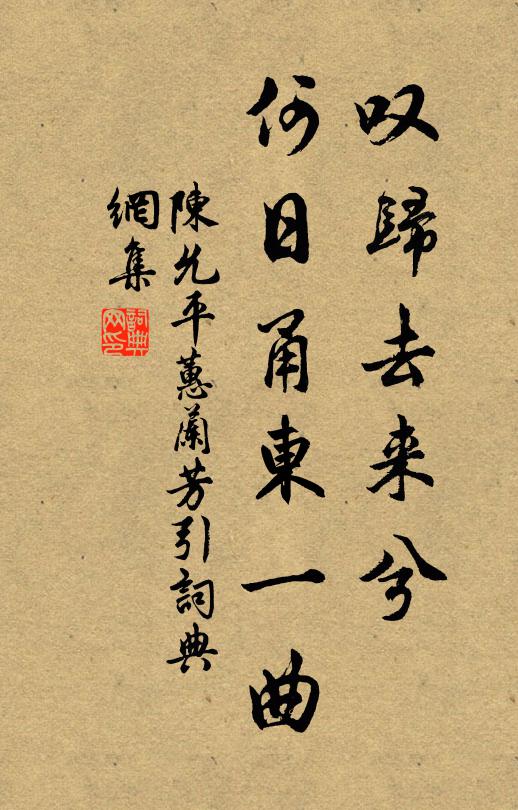 叹歸去来兮
何日甬東一曲
陳允平蕙蘭芳引詞典
網集
詞典網印